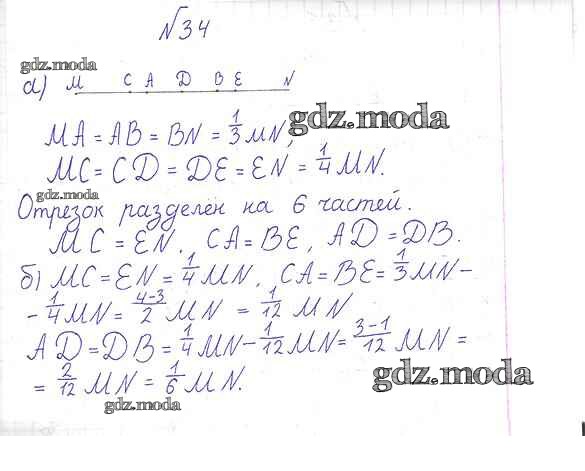 №34
gdz.moda
а) M C A D B E N
gdz.moda
MA = AB = BN = 1/3 MN,
MC = CD = DE = EN = 1/4 MN.
gdz.moda
Отрезок разделен на 6 частей.
MC = EN, CA = BE, AD = DB.
б) MC = EN = 1/4 MN, CA = BE = 1/3 MN -
- 1/4 MN = 4-3/2 MN = 1/12 MN
AD = DB = 1/4 MN - 1/12 MN = 3-1/12 MN =
= 2/12 MN = 1/6 MN.
gdz.moda
gdz.moda